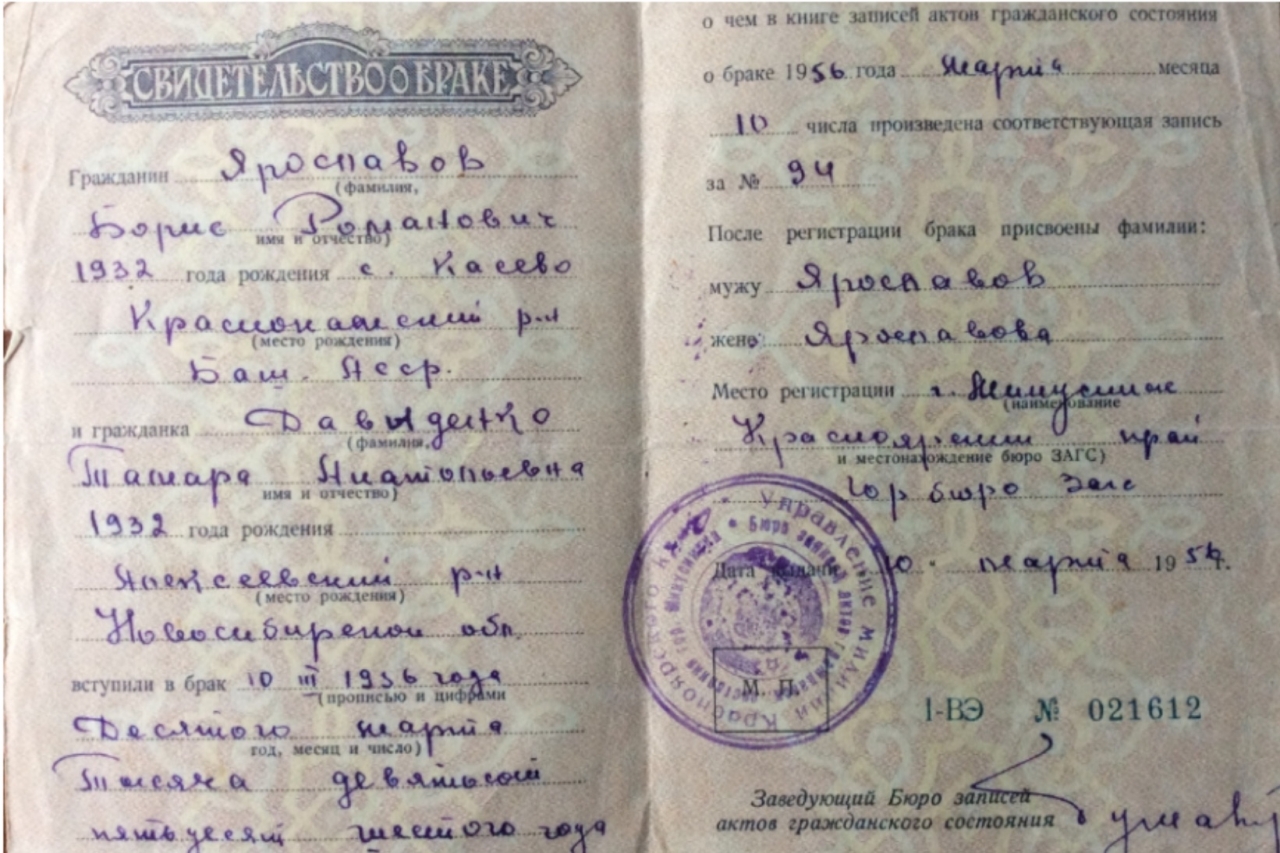 СВИДЕТЕЛЬСТВО О БРАКЕ
Гражданин Ярославов
(фамилия,
Борис Романович
имя и отчество)
1932 года рождения с. Касево
Краснокамский р-н
(место рождения)
Баш. Асср.
и гражданка Давыденко
(фамилия,
Тамара Анатольевна
имя и отчество)
1932 года рождения
Алексеевский р-н
(место рождения)
Новосибирской обл.
вступили в брак 10 III 1956 года
(прописью и цифрами
Десятого марта
год, месяц и число)
Тысяча девятьсот
пятьдесят шестого года
о чем в книге записей актов гражданского состояния
о браке 1956 года марта месяца
10 числа произведена соответствующая запись
за № 94
После регистрации брака присвоены фамилии:
мужу Ярославов
жене Ярославова
Место регистрации г. Минусинск
(наименование
Красноярский край
и местонахождение бюро ЗАГС)
Гор бюро Загс
Дата выдачи 10. марта 195 г.
Управление милиции Красноярского края
Бюро записей актов гражданского состояния гор.
М. П.
I-ВЭ № 021612
Заведующий Бюро записей
актов гражданского состояния